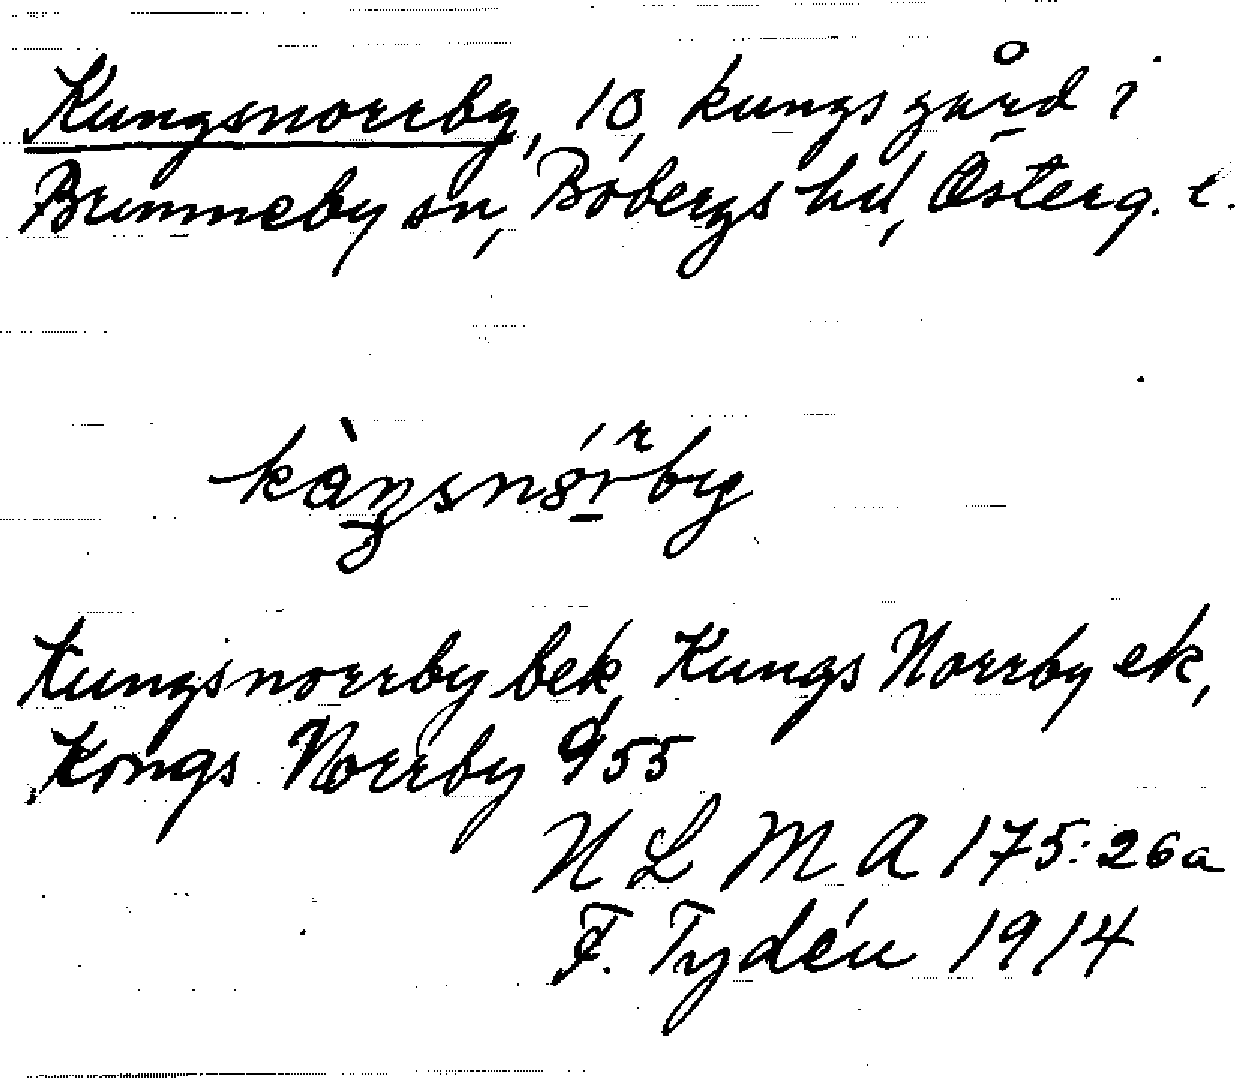 Kungsnorrby, 10, kungsgård i
Brunneby sn, Bobergs hd, Österg. l.
Kungsnorrby bek, Kungs Norrby ek,
Kongs Norrby 955
N L M A 175:26a
F. Tydén 1914